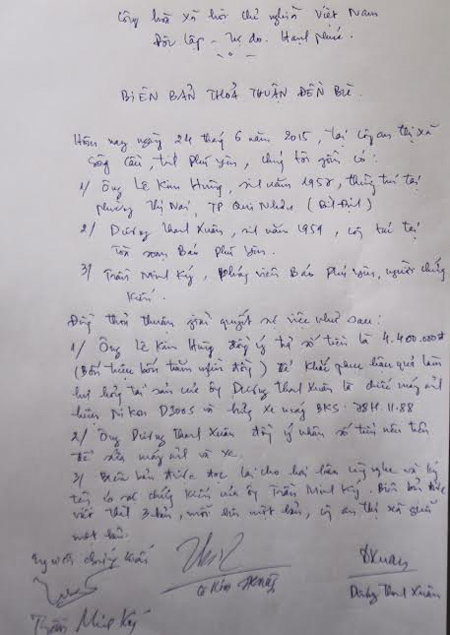 Cộng hoà xã hội chủ nghĩa Việt Nam
Độc lập - Tự do. Hạnh phúc.
BIÊN BẢN THOẢ THUẬN ĐỀN BÙ.
Hôm nay ngày 24 thág 6 năm 2015, tại Công an thị xã
Sông Cầu, tỉnh Phú Yên, chúng tôi gồm có:
1/ Ông Lê Kim Hùng, sinh năm 1958, thường trú tại
phường Thị Nại, TP Quy Nhơn (Bình Định)
2/ Dương Thanh Xuân, sinh năm 1959, công tác tại
Toà soạn Báo Phú Yên.
3/ Trần Minh Ký, Phóng viên Báo Phú Yên, người chứng
kiến.
Đồng thoả thuận giải quyết sự việc như sau:
1/ Ông Lê Kim Hùng đồng ý trả số tiền là 4.400.000đ
(Bốn triệu bốn trăm nghìn đồng) để khắc phục hậu quả làm
hư hỏng tài sản của ông Dương Thanh Xuân là chiếc máy ảnh
hiệu Nikon D300S và xe máy BKS: 78H1.11.88
2/ Ông Dương Thanh Xuân đồng ý nhận số tiền nêu trên
để sửa máy ảnh và xe.
3/ Biên bản được đọc lại cho hai bên cùng nghe và ký
tên có sự chứng kiến của ông Trần Minh Ký. Biên bản được
viết thành 3 bản, mỗi bên một bản, công an thị xã giữ
một bản.
Người chứng kiến
Lê Kim Hùng
DXuan
Dương Thanh Xuân
Trần Minh Ký